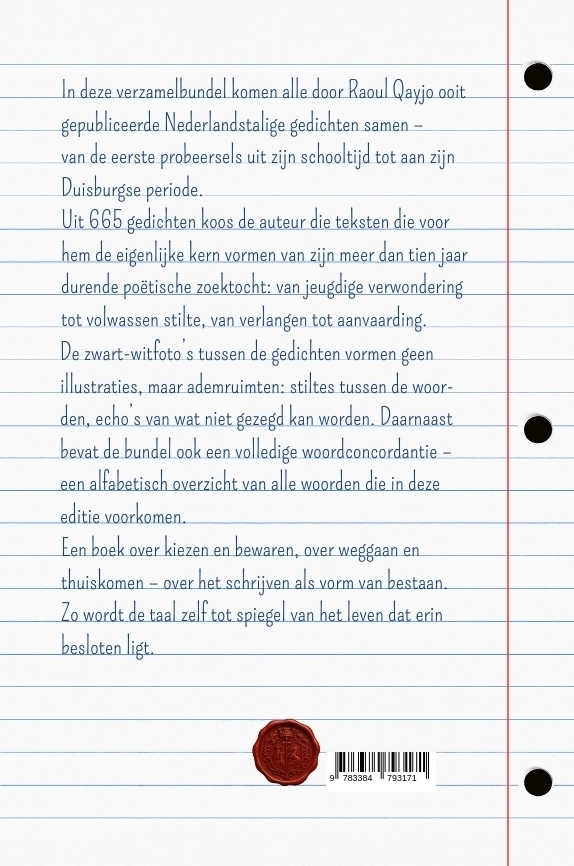 In deze verzamelbundel komen alle door Raoul Qayjo ooit
gepubliceerde Nederlandstalige gedichten samen –
van de eerste probeersels uit zijn schooltijd tot aan zijn
Duisburgse periode.
Uit 665 gedichten koos de auteur die teksten die voor
hem de eigenlijke kern vormen van zijn meer dan tien jaar
durende poëtische zoektocht: van jeugdige verwondering
tot volwassen stilte, van verlangen tot aanvaarding.
De zwart-witfoto's tussen de gedichten vormen geen
illustraties, maar ademruimten: stiltes tussen de woor-
den, echo's van wat niet gezegd kan worden. Daarnaast
bevat de bundel ook een volledige woordconcordantie –
een alfabetisch overzicht van alle woorden die in deze
editie voorkomen.
Een boek over kiezen en bewaren, over weggaan en
thuiskomen – over het schrijven als vorm van bestaan.
Zo wordt de taal zelf tot spiegel van het leven dat erin
besloten ligt.
9 783384 793171